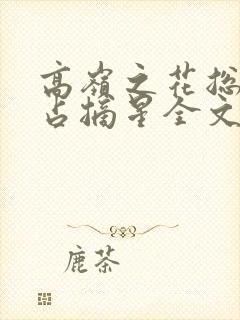 高嶺之花總
占摘星全文
鹿茶